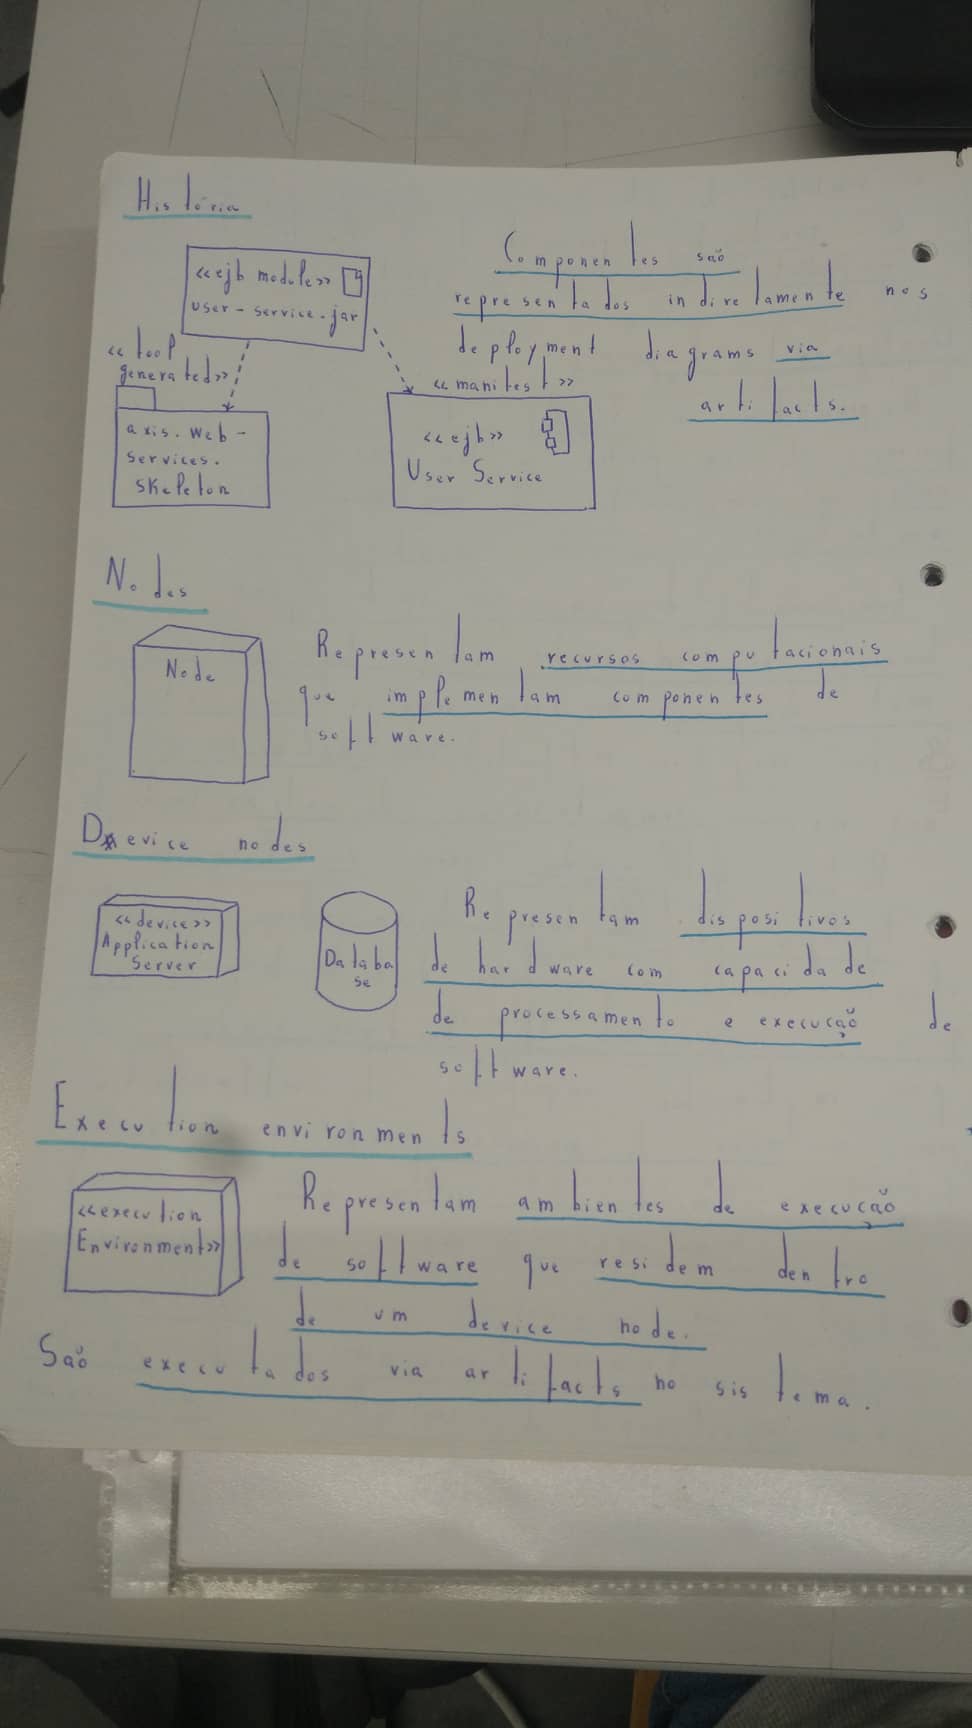 História
<<ejb module>>
user-service.jar
<<tool
generated>>
axis.web-
services.
skeleton
<<manifest>>
<<ejb>>
User Service
Componentes são
representados indiretamente nos
deployment diagrams via
artifacts.
Nodes
Node
Representam recursos computacionais
que implementam componentes de
software.
Device nodes
<<device>>
Application
Server
Databa
se
Representam dispositivos
de hardware com capacidade
de processamento e execução de
software.
Execution environments
<<execution
Environment>>
Representam ambientes de execução
de software que residem dentro
de um device node.
São executados via artifacts no sistema.